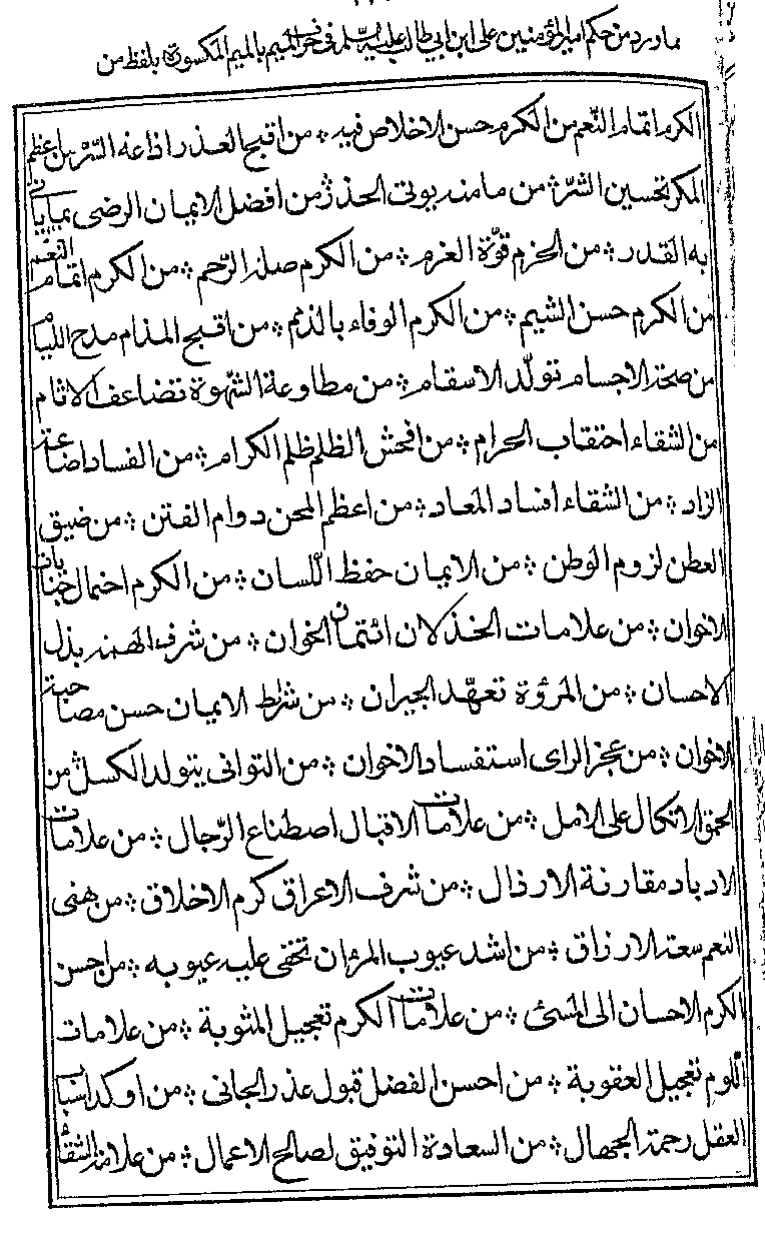 مما ورد من حكم امير المؤمنين علي ابن ابي طالب عليه السلام في حرف الميم بالميم المكسورة بلفظ من
الكرم اتمام النعم من الكرم حسن الاخلاص فيه ؞ من اقبح الغدر اذاعة السر من اعظم
المكر تحسين الشر ؞ من مامنه يوتى الحذر ؞ من افضل الايمان الرضى بما ياتى
به القدر ؞ من الحزم قوّة العزم ؞ من الكرم صلة الرّحم ؞ من الكرم اتمام النعم
من الكرم حسن الشيم ؞ من الكرم الوفاء بالذمم ؞ من اقبح المذام مدح اللئام
من صحة الاجسام تولّد الاسقام ؞ من مطاوعة الشهوة تضاعف الاثام
من الشقاء احتقاب الحرام ؞ من افحش الظلم ظلم الكرام ؞ من الفساد اضاعة
الزاد ؞ من الشقاء افساد المعاد ؞ من اعظم المحن دوام الفتن ؞ من ضيق
العطن لزوم الوطن ؞ من الايمان حفظ اللّسان ؞ من الكرم احتمال جنايات
الاخوان ؞ من علامات الخذلان ائتمان الخوان ؞ من شرف الهمة بذل
الاحسان ؞ من المرؤة تعهّد الجيران ؞ من شرائط الايمان حسن مصاحبة
الاخوان ؞ من عجز الراى استفساد الاخوان ؞ من التوانى يتولد الكسل ؞ من
الحمق الاتكال على الامل ؞ من علامات الاقبال اصطناع الرّجال ؞ من علامات
الادبار مقارنة الارذال ؞ من شرف الاعراق كرم الاخلاق ؞ من هنى
النعم سعة الارزاق ؞ من اشد عيوب المرء ان تخفى عليه عيوبه ؞ من احسن
الكرم الاحسان الى المسئ ؞ من علامات الكرم تعجيل المثوبة ؞ من علامات
اللّوم تعجيل العقوبة ؞ من احسن الفضل قبول عذر الجانى ؞ من اوكد اسباب
العقل رحمة الجهال ؞ من السعادة التوفيق لصالح الاعمال ؞ من علامة الشقاء